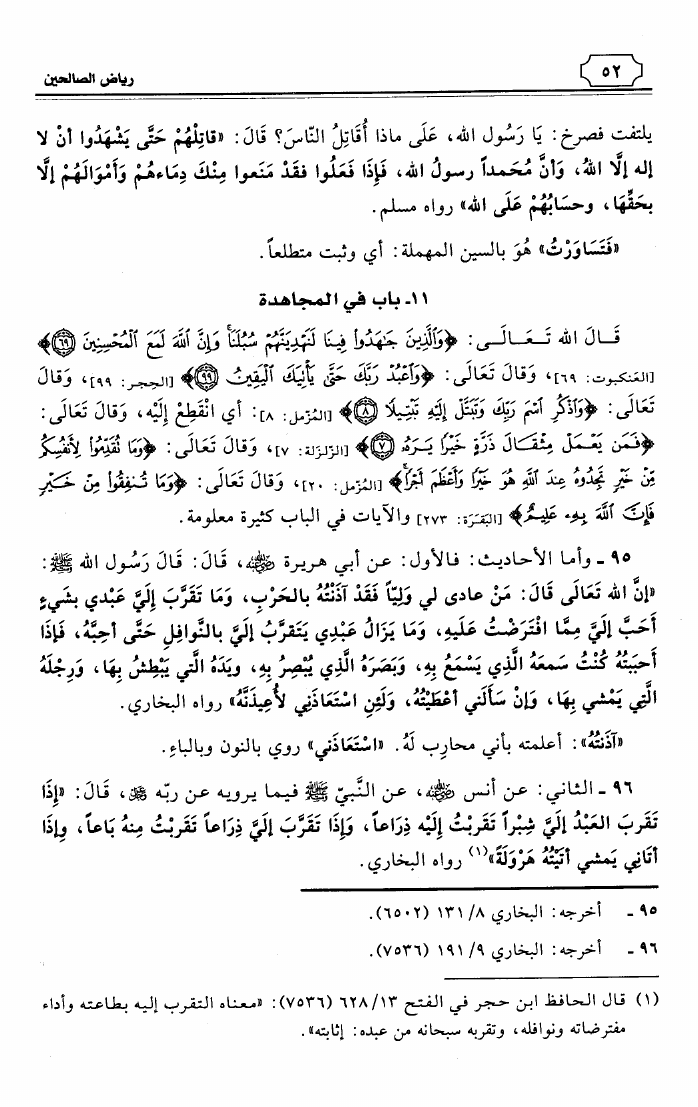 ٥٢
رياض الصالحين
يلتفت فصرخ: يَا رَسُول الله، عَلَى ماذا أُقَاتِلُ النَّاسَ؟ قَالَ: «قاتِلْهُمْ حَتَّى يَشْهَدُوا أنْ لا
إله إلَّا اللهُ، وَأنَّ مُحَمداً رسولُ الله، فَإذَا فَعَلُوا فقَدْ مَنَعوا مِنْكَ دِمَاءهُمْ وَأمْوَالَهُمْ إلَّا
بحَقِّهَا، وحسَابُهُمْ عَلَى الله» رواه مسلم.
«فَتَسَاوَرْتُ» هُوَ بالسين المهملة: أي وثبت متطلعاً.
١١ـ باب في المجاهدة
قَـالَ الله تَـعَـالَـى: ﴿وَالَّذِينَ جَاهَدُوا فِينَا لَنَهْدِيَنَّهُمْ سُبُلَنَا وَإِنَّ اللَّهَ لَمَعَ الْمُحْسِنِينَ ٦٩﴾
[العَنكبوت: ٦٩]، وَقَالَ تَعَالَى: ﴿وَاعْبُدْ رَبَّكَ حَتَّى يَأْتِيَكَ الْيَقِينُ ٩٩﴾ [الحِجر: ٩٩]، وَقَالَ
تَعَالَى: ﴿وَاذْكُرِ اسْمَ رَبِّكَ وَتَبَتَّلْ إِلَيْهِ تَبْتِيلًا ٨﴾ [المُزّمل: ٨]: أي انْقَطِعْ إلَيْه، وَقَالَ تَعَالَى:
﴿فَمَن يَعْمَلْ مِثْقَالَ ذَرَّةٍ خَيْرًا يَرَهُ ٧﴾ [الزّلزَلة: ٧]، وَقَالَ تَعَالَى: ﴿وَمَا تُقَدِّمُوا لِأَنفُسِكُم
مِّنْ خَيْرٍ تَجِدُوهُ عِندَ اللَّهِ هُوَ خَيْرًا وَأَعْظَمَ أَجْرًا﴾ [المُزّمل: ٢٠]، وَقَالَ تَعَالَى: ﴿وَمَا تُنفِقُوا مِنْ خَيْرٍ
فَإِنَّ اللَّهَ بِهِ عَلِيمٌ﴾ [البَقَرَة: ٢٧٣] والآيات في الباب كثيرة معلومة.
٩٥ ـ وأما الأحاديث: فالأول: عن أبي هريرة رضي الله عنه، قَالَ: قَالَ رَسُول الله ﷺ:
«إنَّ الله تَعَالَى قَالَ: مَنْ عادى لي وَلِيّاً فَقَدْ آذَنْتُهُ بالحَرْبِ، وَمَا تَقَرَّبَ إلَيَّ عَبْدي بشَيءٍ
أَحَبَّ إلَيَّ مِمَّا افْتَرَضْتُ عَلَيهِ، وَمَا يَزَالُ عَبْدِي يَتَقرَّبُ إلَيَّ بالنَّوافِلِ حَتَّى أحِبَّهُ، فَإذَا
أَحبَبتُهُ كُنْتُ سَمعَهُ الَّذي يَسْمَعُ بِهِ، وبَصَرَهُ الَّذي يُبْصِرُ بِهِ، ويَدَهُ الَّتي يَبْطِشُ بهَا، وَرِجْلَهُ
الَّتِي يَمْشي بِهَا، وَإنْ سَألَني أعْطَيْتُهُ، وَلَئِنِ اسْتَعَاذَنِي لأُعِيذَنَّهُ» رواه البخاري.
«آذَنْتُهُ»: أعلمته بأني محارِب لَهُ. «اسْتَعَاذَني» روي بالنون وبالباءِ.
٩٦ ـ الثاني: عن أنس رضي الله عنه، عن النَّبيّ ﷺ فيما يرويه عن ربّه عز وجل، قَالَ: «إِذَا
تَقَربَ العَبْدُ إلَيَّ شِبْراً تَقَربْتُ إلَيْه ذِرَاعاً، وَإِذَا تَقَرَّبَ إلَيَّ ذِرَاعاً تَقَربْتُ مِنهُ بَاعاً، وإِذَا
أتَانِي يَمشي أتَيْتُهُ هَرْوَلَةً»(١) رواه البخاري.
٩٥ ـ أخرجه: البخاري ٨/ ١٣١ (٦٥٠٢).
٩٦ ـ أخرجه: البخاري ٩/ ١٩١ (٧٥٣٦).
(١) قال الحافظ ابن حجر في الفتح ١٣/ ٦٢٨ (٧٥٣٦): «معناه التقرب إليه بطاعته وأداء
مفترضاته ونوافله، وتقربه سبحانه من عبده: إثابته».